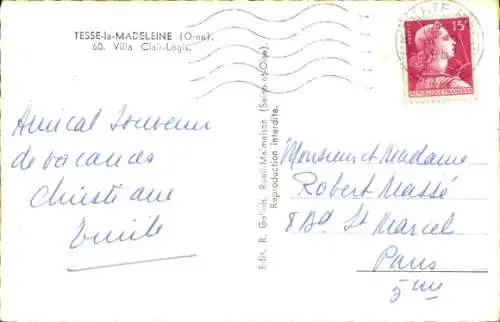 TESSE-la-MADELEINE (Orne).
60. Villa Clair-Logis.
Amical Souvenir
de vacances
Christiane
Emile
Edit. R. Gallois, Rueil-Malmaison (Seine-et-Oise).
Reproduction interdite.
15F
REPUBLIQUE FRANÇAISE
Monsieur et Madame
Robert Massé
8 Bd St Marcel
Paris
5me